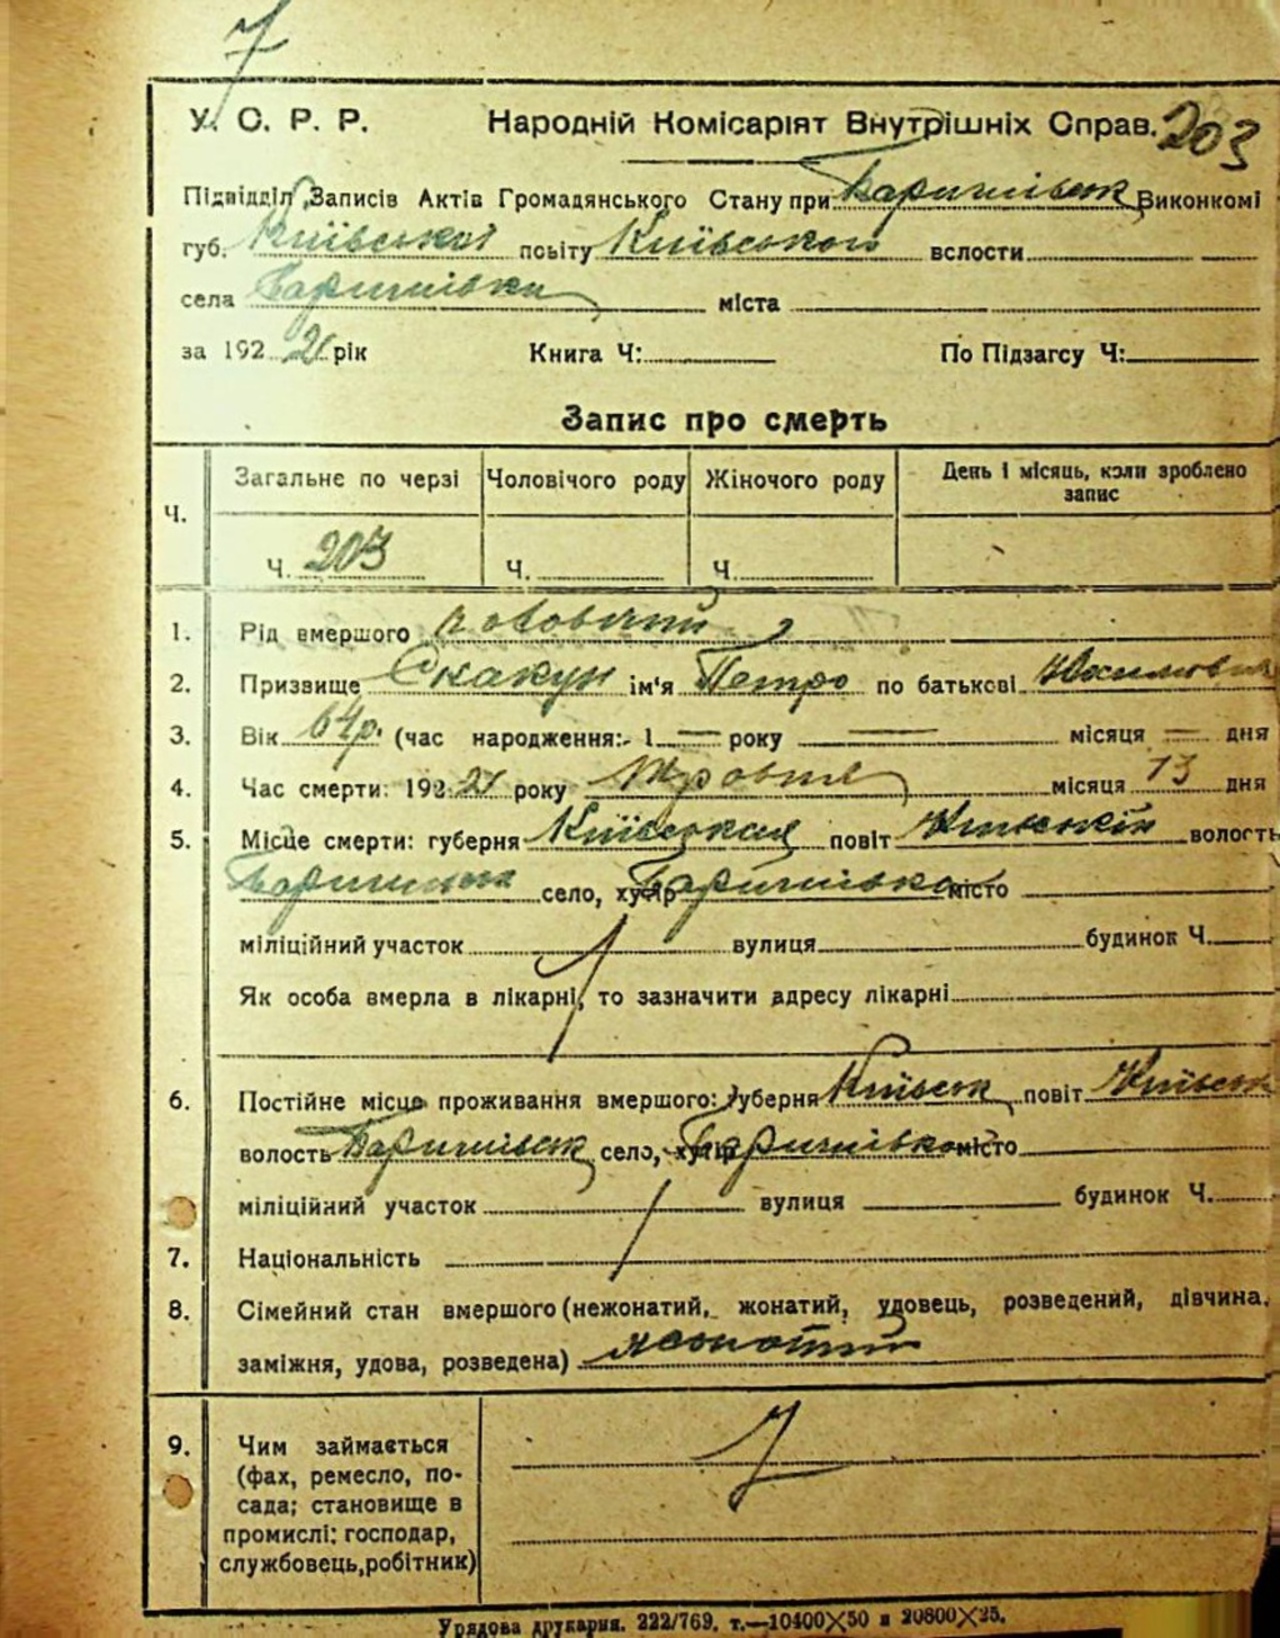 7
У. С. Р. Р. Народній Комісаріят Внутрішніх Справ. 203
Підвідділ Записів Актів Громадянського Стану при Баришівськ Виконкомі
губ. Київської повіту Київського волости
села Баришівки міста
за 192 рік Книга Ч: По Підзагсу Ч:
Запис про смерть
Ч. Загальне по черзі Чоловічого роду Жіночого роду День і місяць, коли зроблено
запис
Ч. 203 Ч. Ч.
1. Рід вмершого чоловічий
2. Призвище Скакун ім'я Петро по батькові
3. Вік 64р. (час народження:- 1 — року — місяця — дня
4. Час смерти: 192 року Травня місяця 13 дня
5. Місце смерти: губерня Київськая повіт волость
село, хутір Баришівка місто
міліційний участок вулиця будинок Ч.
Як особа вмерла в лікарні, то зазначити адресу лікарні
6. Постійне місце проживання вмершого: губерня Київськ повіт Київськ
волость Баришівськ село, хутір Баришівка місто
міліційний участок вулиця будинок Ч.
7. Національність
8. Сімейний стан вмершого (нежонатий, жонатий, удовець, розведений, дівчина,
заміжня, удова, розведена) жонатий
9. Чим займається
(фах, ремесло, по-
сада; становище в
промислі: господар,
службовець, робітник)
Урядова друкарня. 222/769. т.—10400×50 и 20800×25.